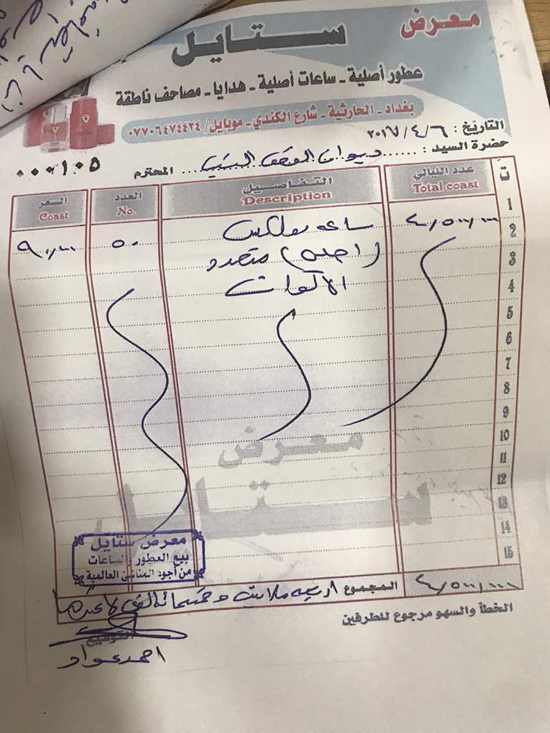 معرض ستايل
عطور أصلية ـ ساعات أصلية ـ هدايا ـ مصاحف ناطقة
بغداد ـ الحارثية ـ شارع الكندي ـ موبايل/ ٠٧٧٠٦٤٧٤٤٢٤
التاريخ: ٢٠١٧/٤/٦
حضرة السيد: ديوان الوقف السني المحترم
٠٠٠١٠٥
ت عدد الليالي التفاصيل العدد السعر
Total coast Description No. Coast
1
2 ٤/٥٠٠/٠٠٠ ساعه رولكس ٥٠ ٩٠/٠٠٠
3 (اصلي) متعدد
4 الالوان
5
6
7
8
9
10
11
12
13
14
15
معرض
ستايل
معرض ستايل
بيع العطور والساعات
من أجود المناشئ العالمية
٤/٥٠٠/٠٠٠ المجموع اربعه ملاين وخمسمائه الف لاغيرها
الخطأ والسهو مرجوع للطرفين
التوقيع
احمد عواد